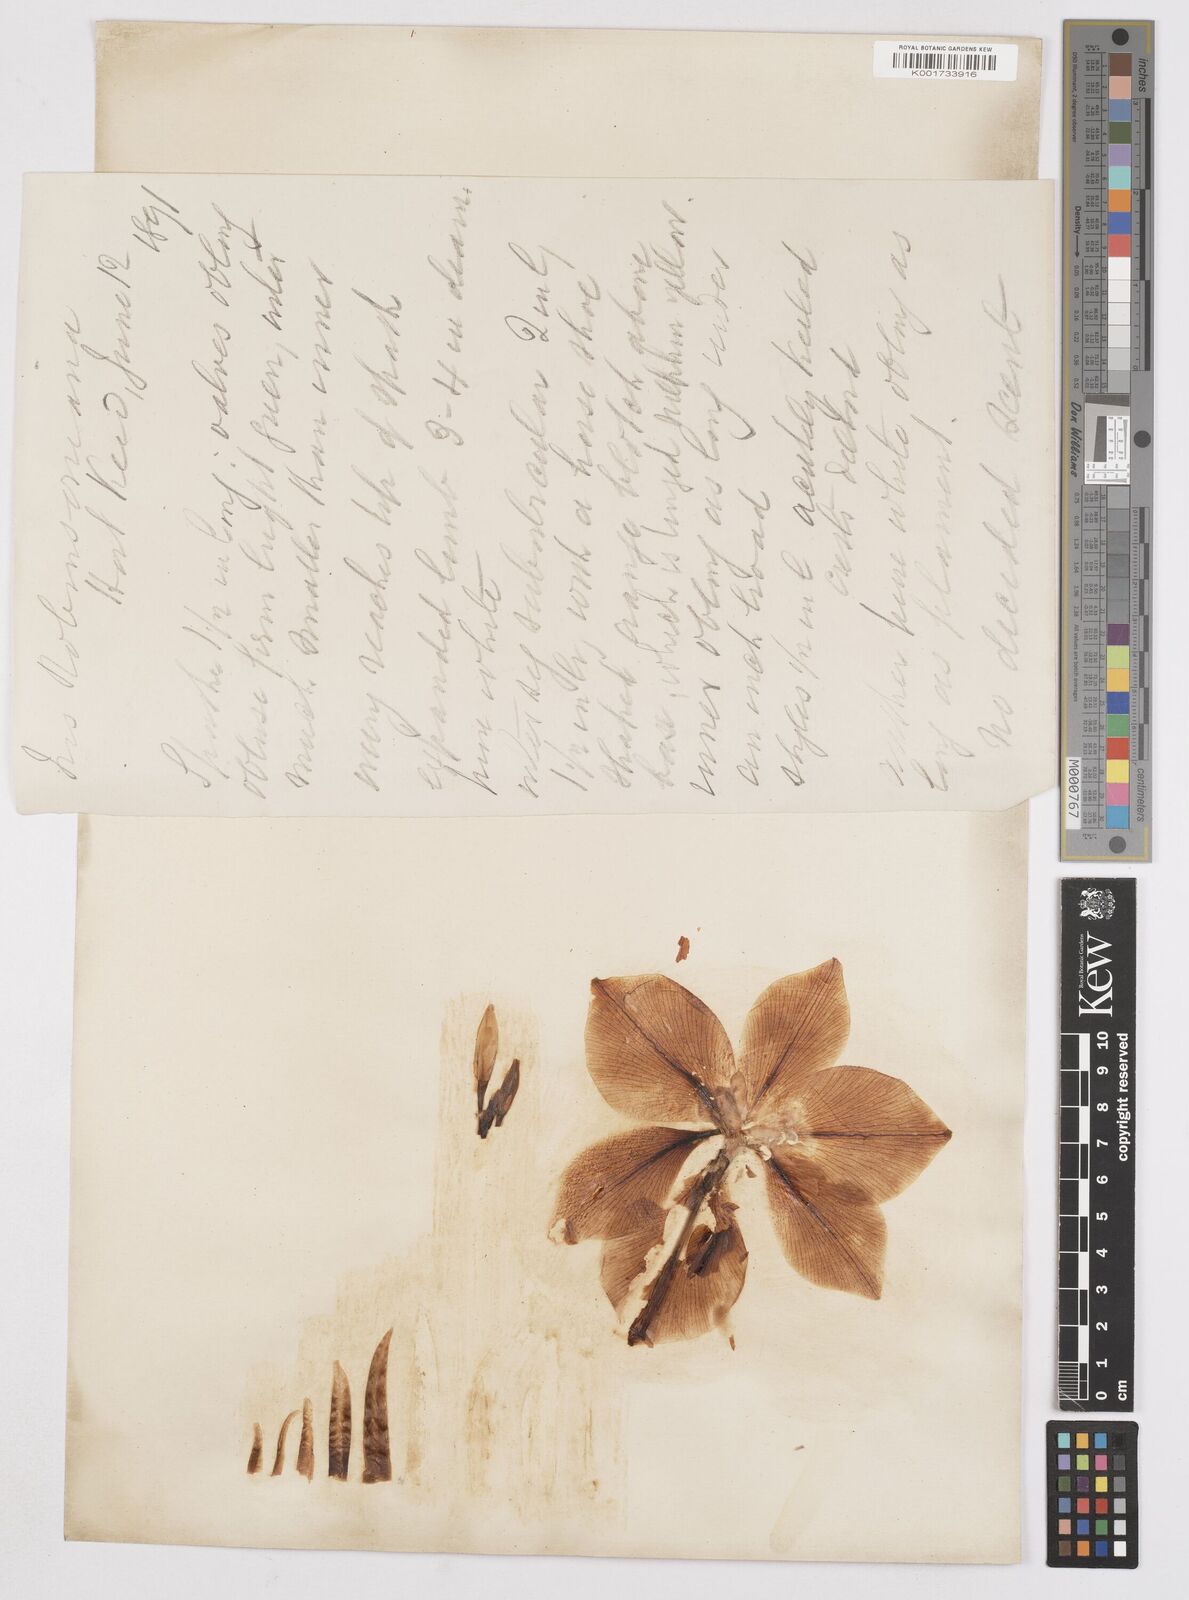 ROYAL BOTANIC GARDENS KEW
K001733916
Iris Robinsoniana
Hort Kew, June 12
1891
Spathe 1 1/2 in long; valves oblong
obtuse firm bright green, outer
much smaller than inner
ovary reaches top of spath
expanded limb 3-4 in diam.
pure white
outer seg suborbicular 2 in l,
1 1/2 in br with a horse shoe
shaped orange blotch above
base, which is tinged sulphur yellow.
inner oblong as long under
an inch broad
styles 1/2 in l acutely keeled
crests deltoid
anther pure white oblong as
long as filament.
No decided scent
inches
D50 Illuminant, 2 degree observer
Density
Don Williams
All values are averages
M000767
centimeters
Kew
Royal Botanic Gardens
copyright reserved
0 1 2 3 4 5 6 7 8 9 10
cm